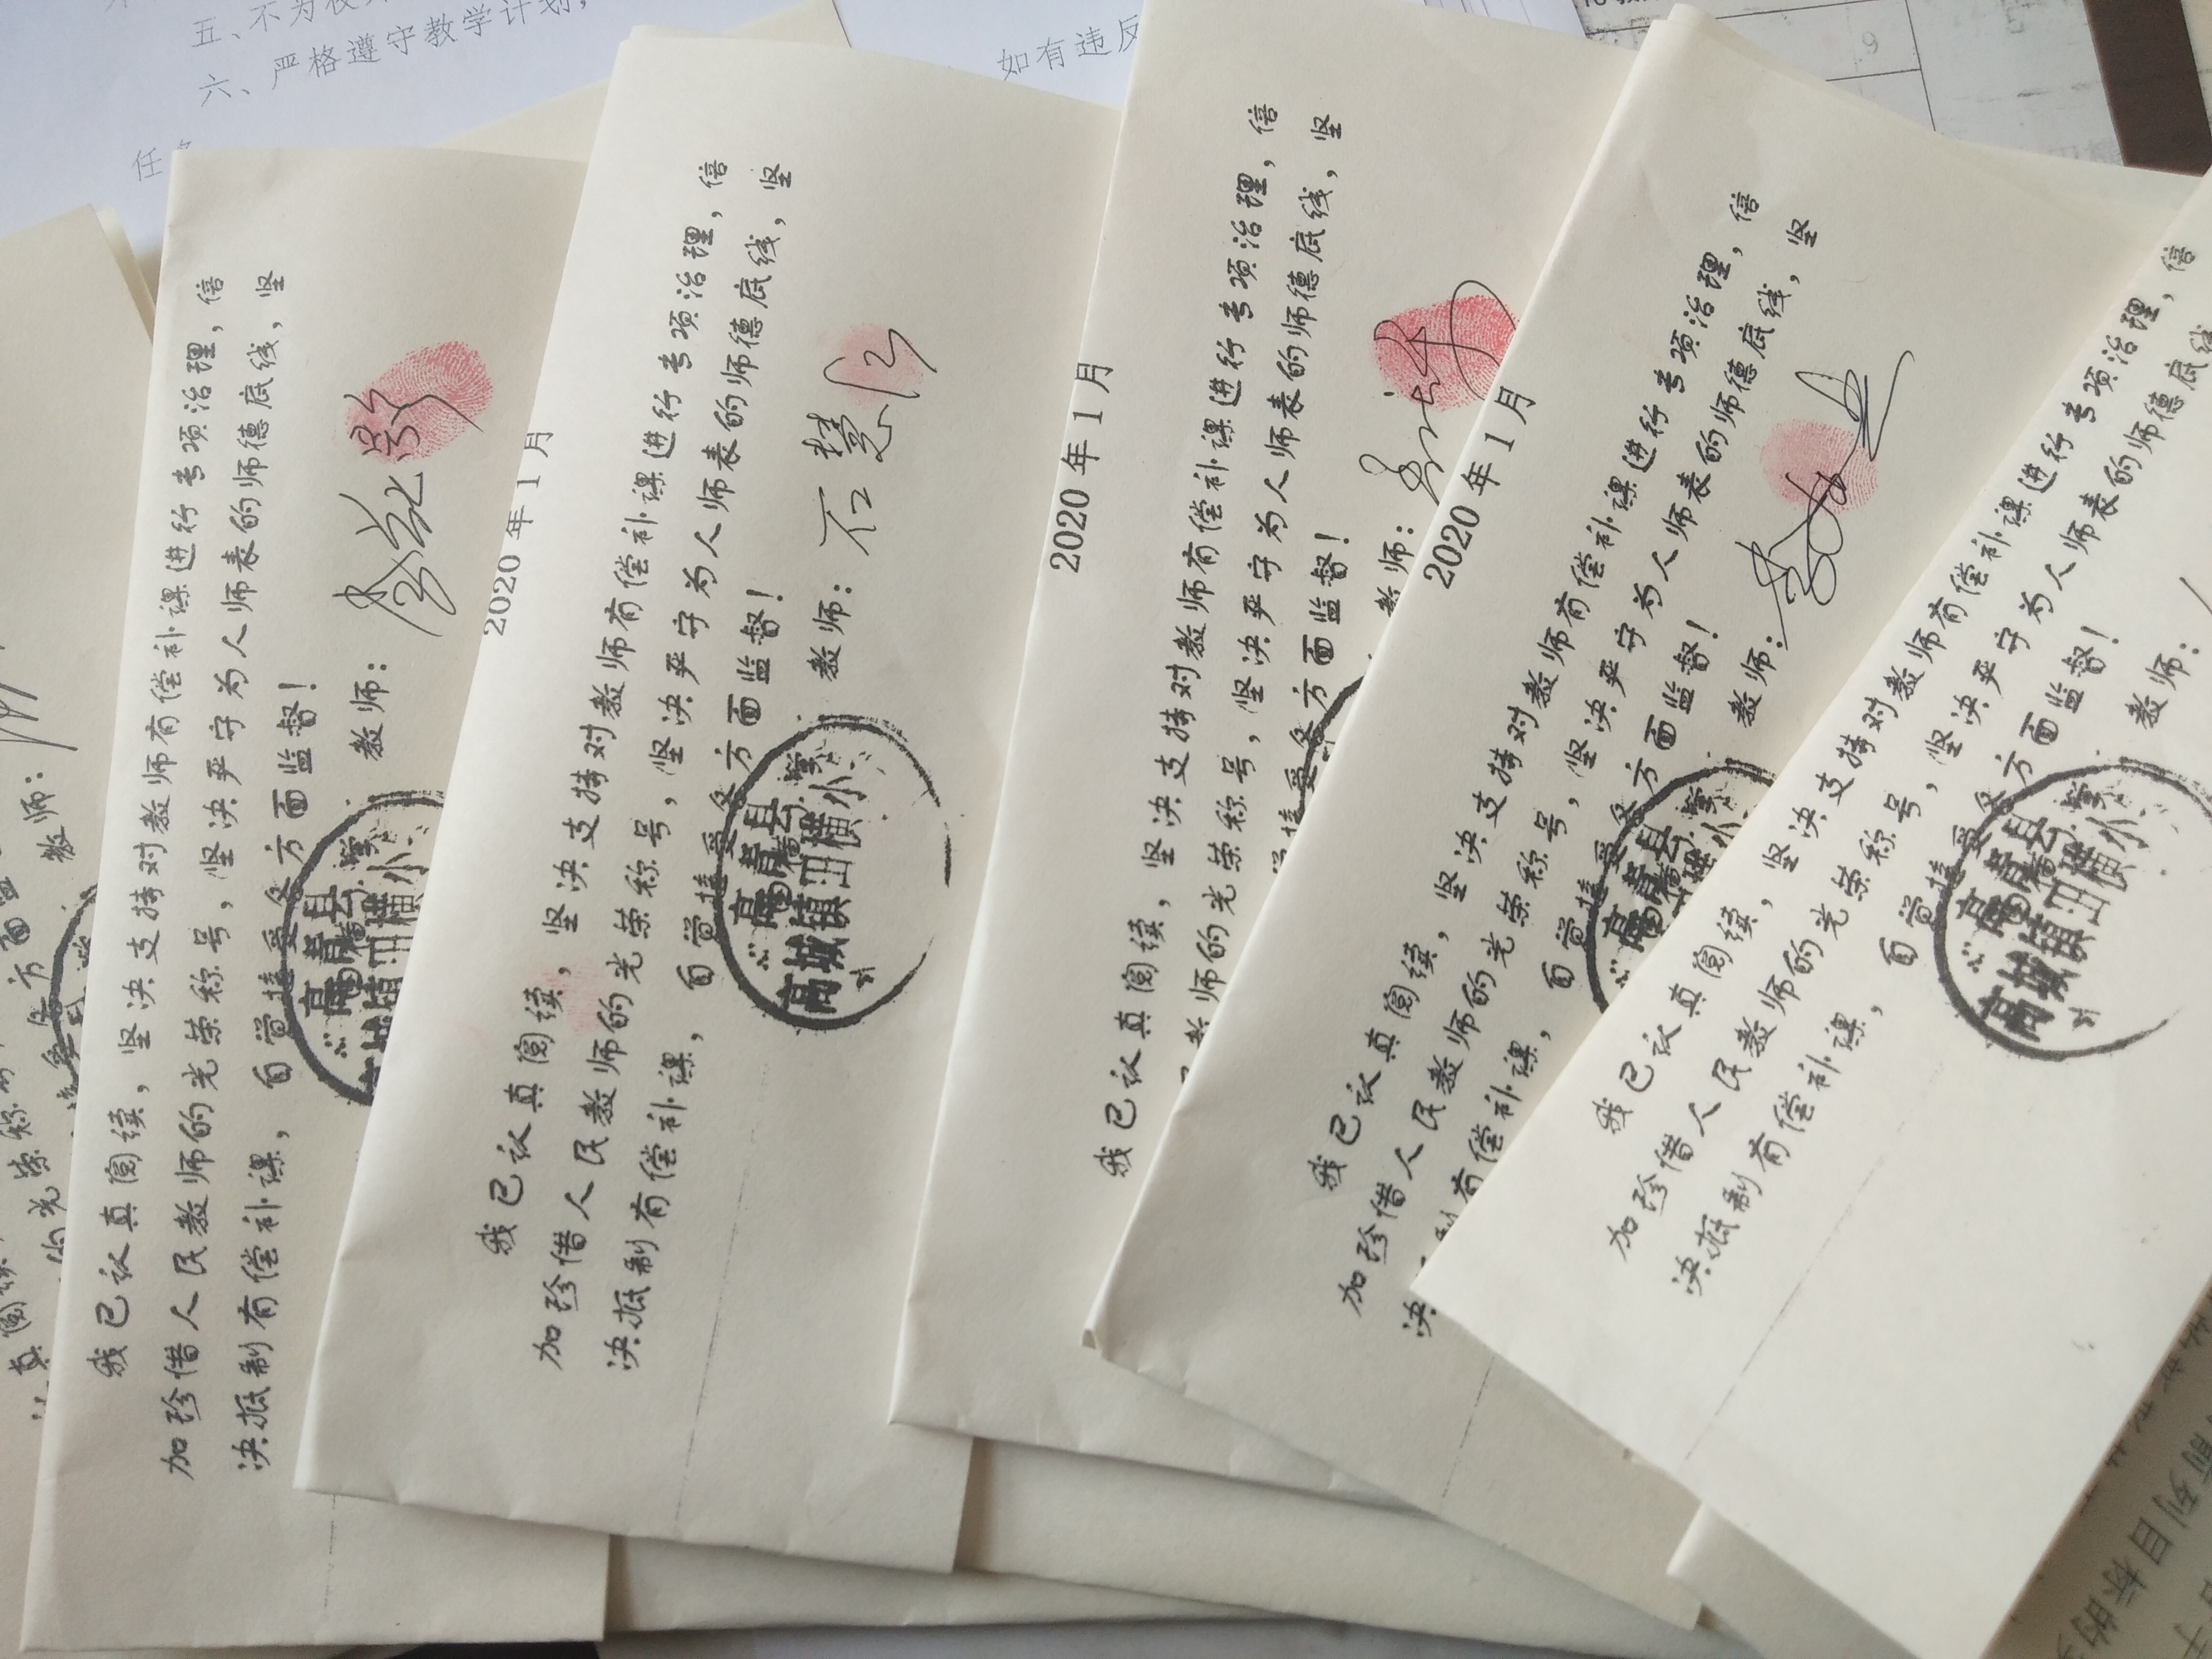 五、不为校
六、严格遵守教学计划，
如有违反
任
教师：
我已认真阅读，坚决支持对教师有偿补课进行专项治理，倍
加珍惜人民教师的光荣称号，坚决严守为人师表的师德底线，坚
决抵制有偿补课，自觉接受各方面监督！
教师：
2020年1月
我已认真阅读，坚决支持对教师有偿补课进行专项治理，倍
加珍惜人民教师的光荣称号，坚决严守为人师表的师德底线，坚
决抵制有偿补课，自觉接受各方面监督！
教师：石慧
高青县
高城镇田横小学
2020年1月
我已认真阅读，坚决支持对教师有偿补课进行专项治理，倍
教师的光荣称号，坚决严守为人师表的师德底线，坚
自觉接受各方面监督！
教师：
2020年1月
我已认真阅读，坚决支持对教师有偿补课进行专项治理，倍
加珍惜人民教师的光荣称号，坚决严守为人师表的师德底线，坚
决抵制有偿补课，自觉接受各方面监督！
教师：
高青县
我已认真阅读，坚决支持对教师有偿补课进行专项治理，倍
加珍惜人民教师的光荣称号，坚决严守为人师表的师德底线
决抵制有偿补课，自觉接受各方面监督！
教师：
高青县
高城镇田横小学
前列目标的